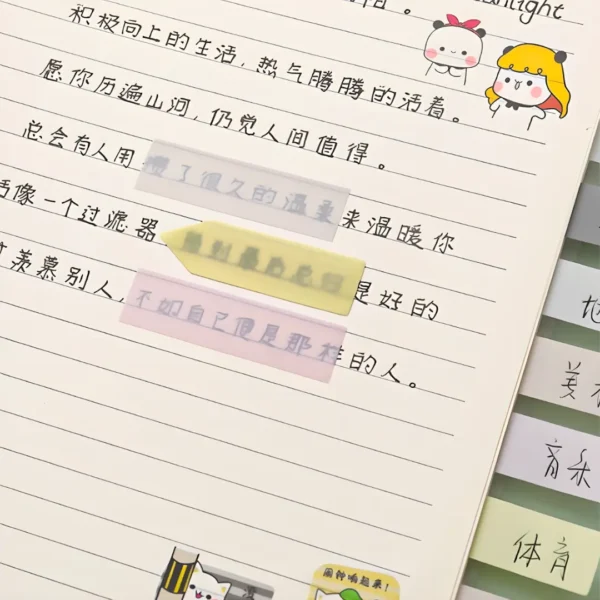 anlight
阳。
积极向上的生活，热气腾腾的活着。
愿你历遍山河，仍觉人间值得。
总会有人用攒了很久的温柔来温暖你
活像一个过滤器，遇到最后总归是好的
羡慕别人，不如自己便是那样的人。
美
音乐
体育
闹钟响起来！